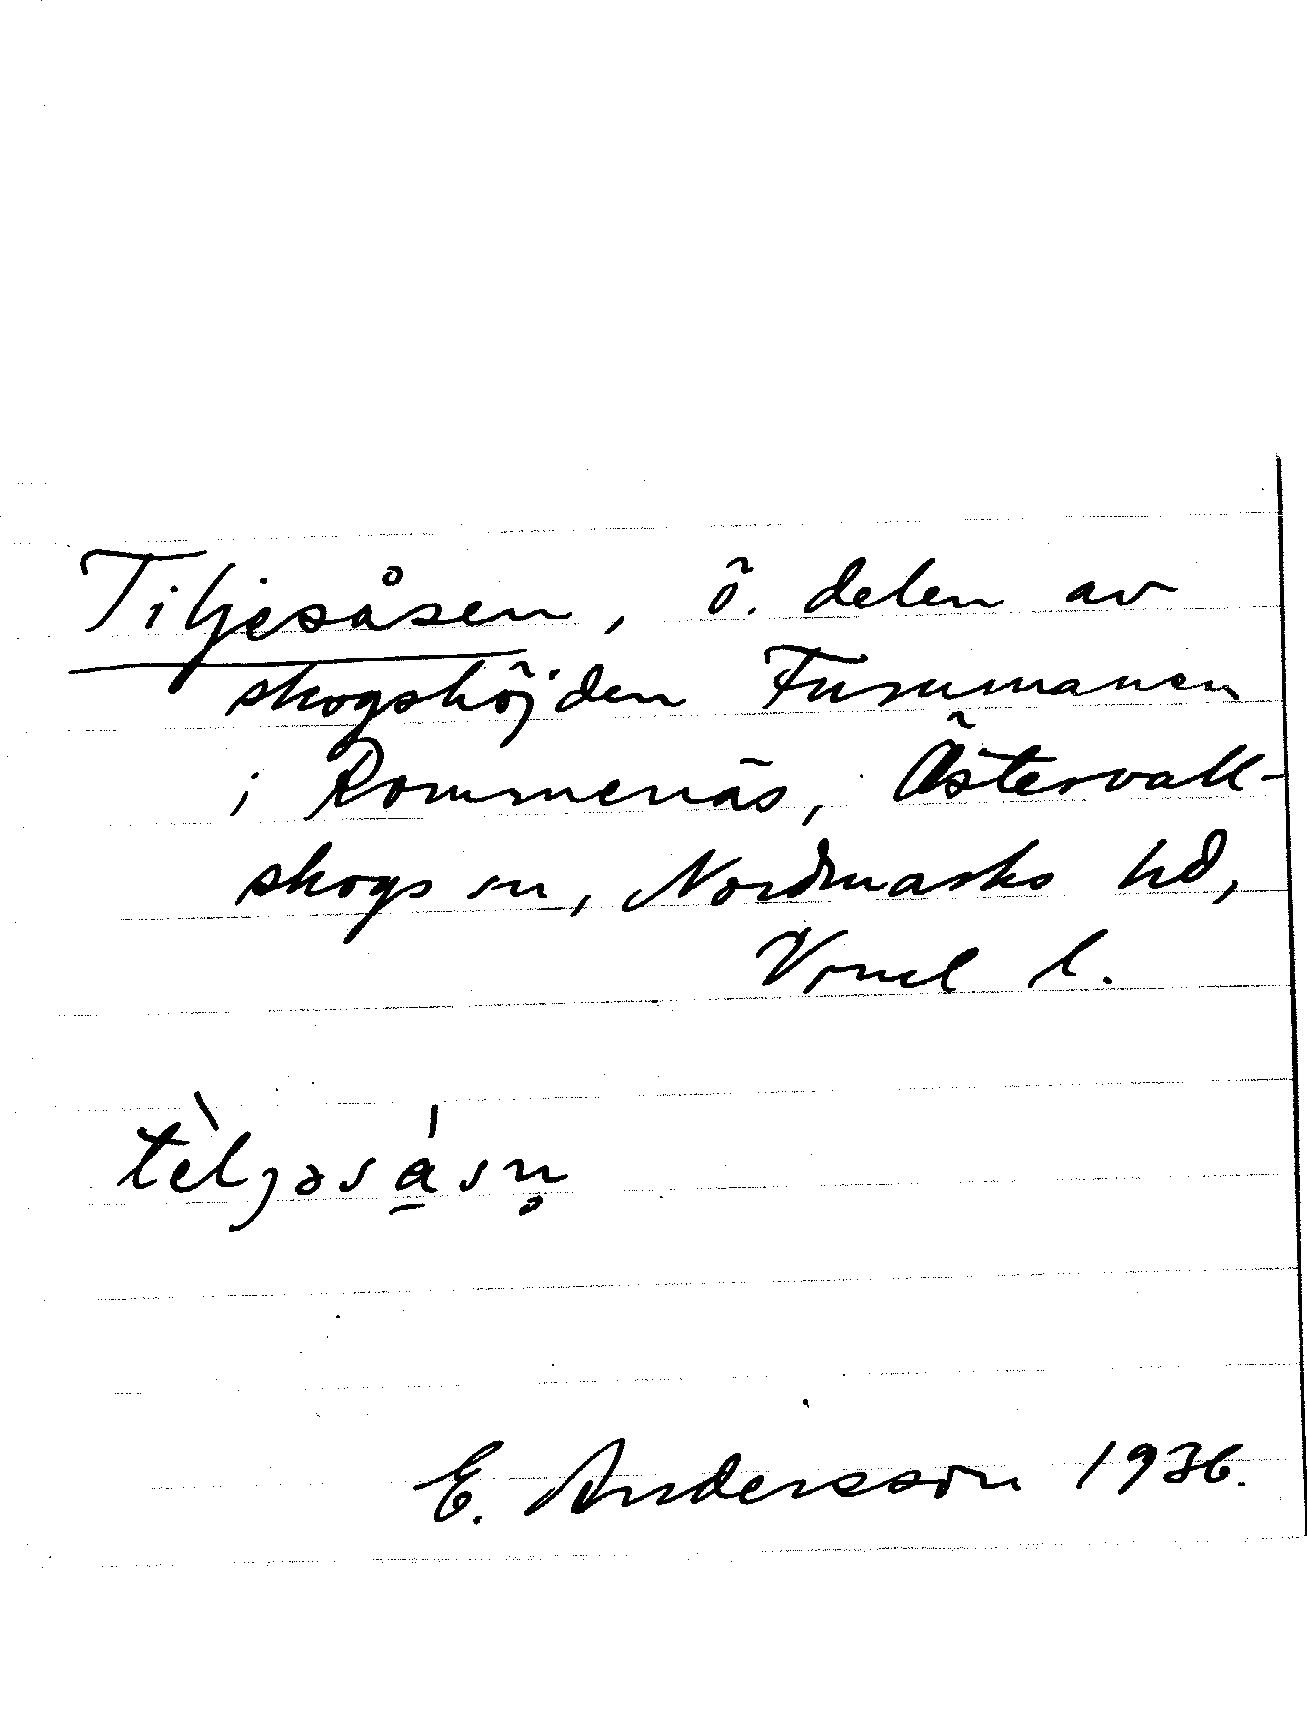 Tiljesåsen, ö. delen av
skogshöjden Furumanen
i Rommenäs, Östervall-
skogs sn, Nordmarks hd,
Vrml l.
tèljəsá̲sn̥
E. Andersson 1936.